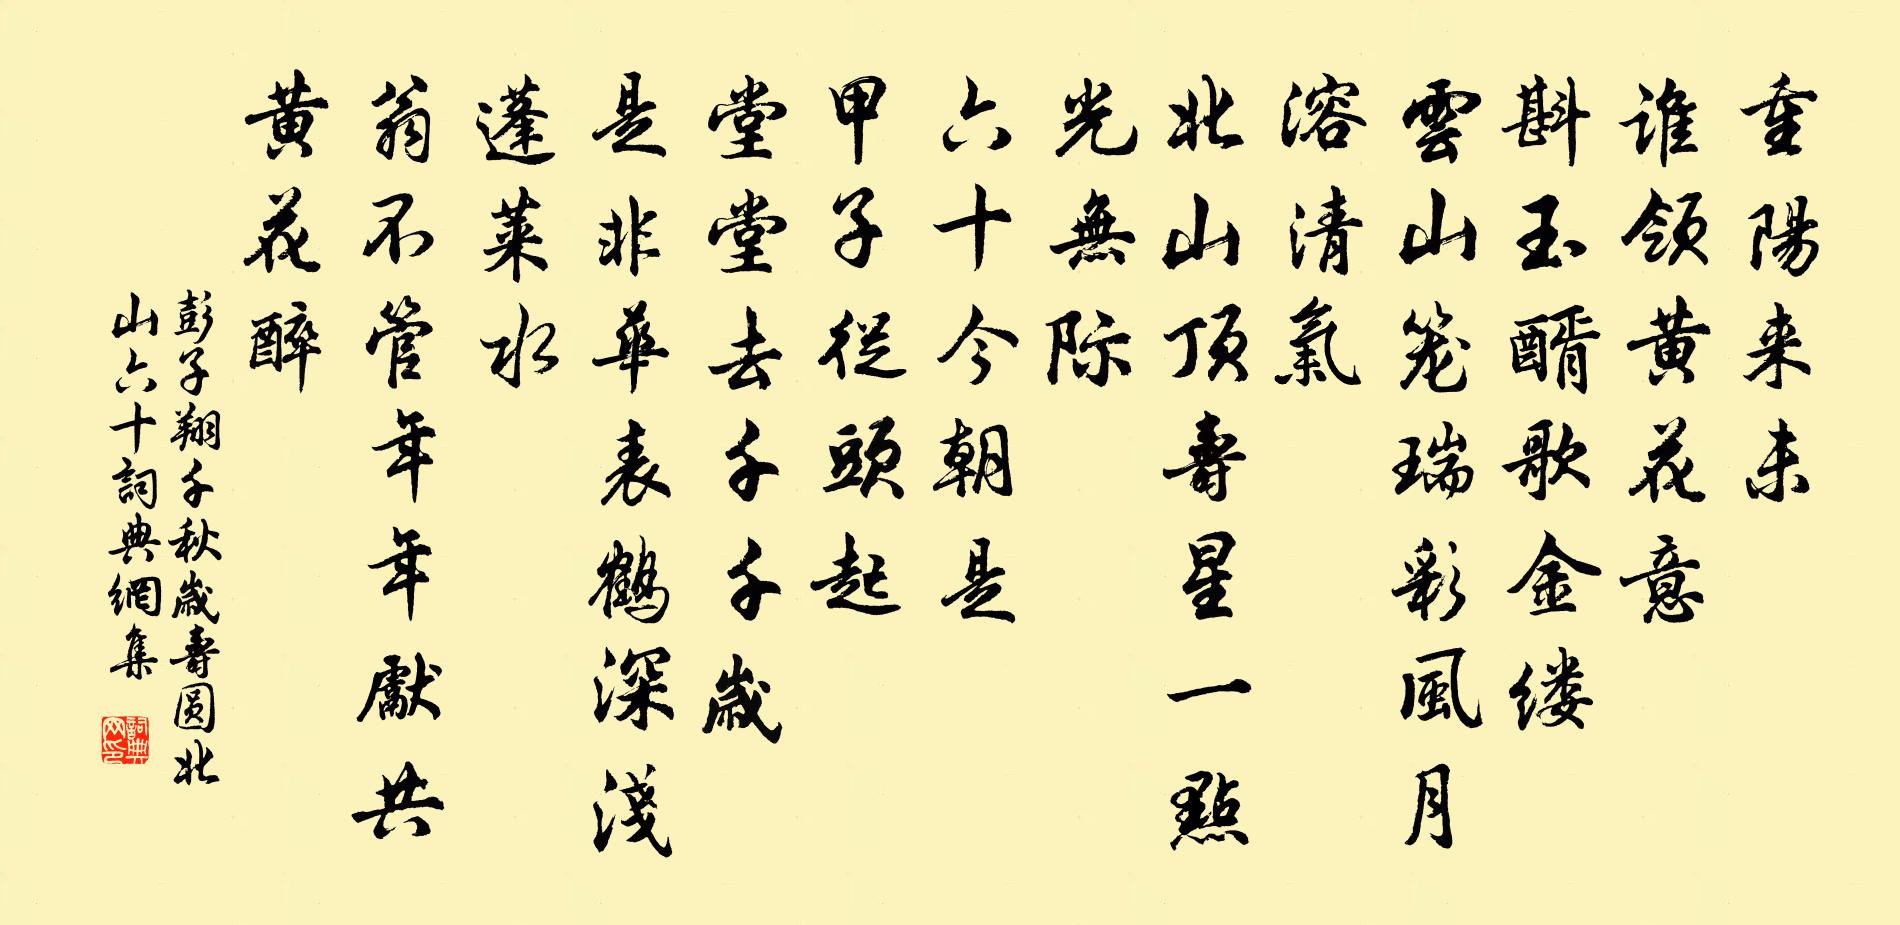 重陽来未
谁領黄花意
斟玉醑歌金缕
雲山笼瑞彩風月
溶清氣
北山頂壽星一點
光無际
六十今朝是
甲子從頭起
堂堂去千千歲
是非華表鶴深淺
蓬莱水
翁不管年年獻共
黄花醉
彭子翔千秋歲壽圆北
山六十詞典網集
詞典网印